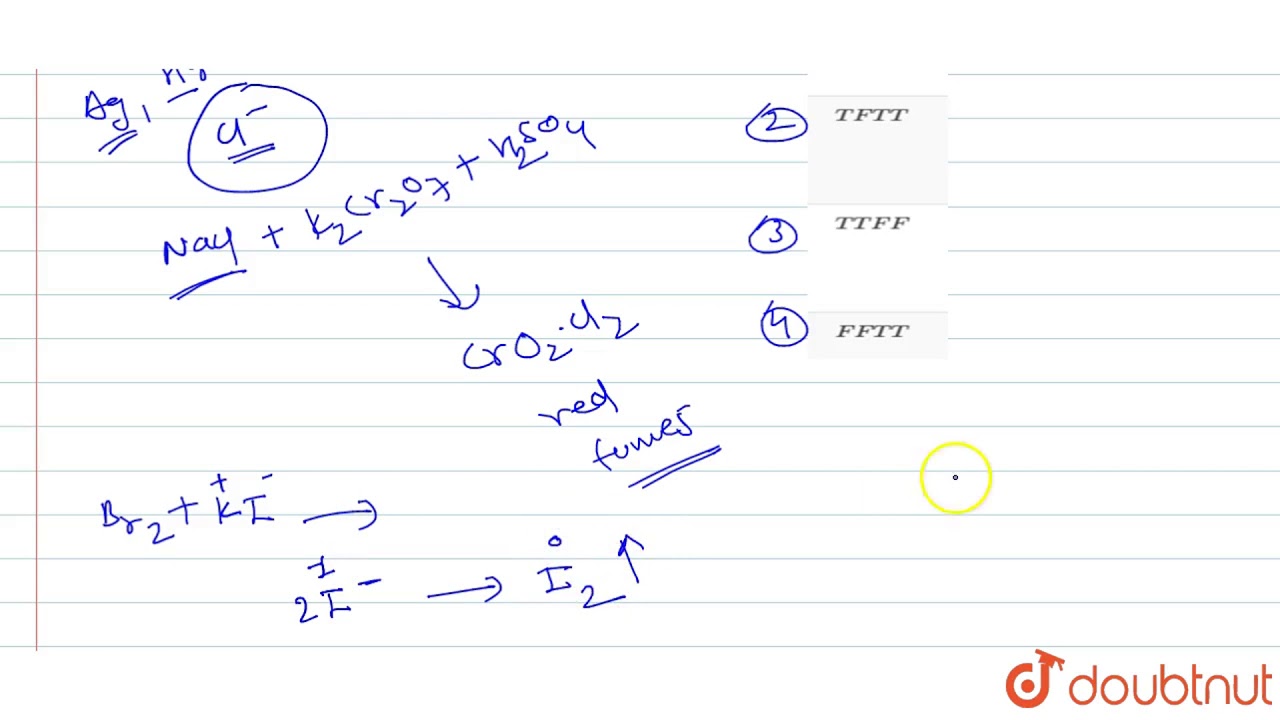 Ag,
Cl⁻
NaCl + K₂Cr₂O₇ + H₂SO₄
CrO₂Cl₂
red
fumes
Br₂ + K⁺I⁻ →
2I⁻ → I₂ ↑
② TFTT
③ TTFF
④ FFTT
doubtnut